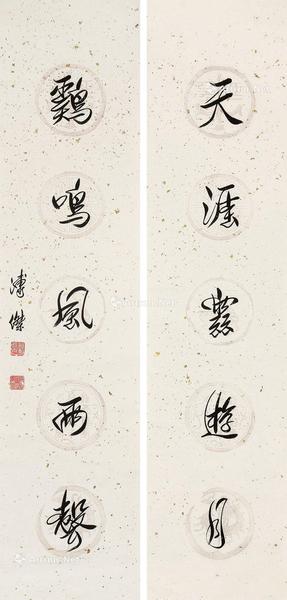 天涯遊月
鷄鳴風雨聲
溥傑